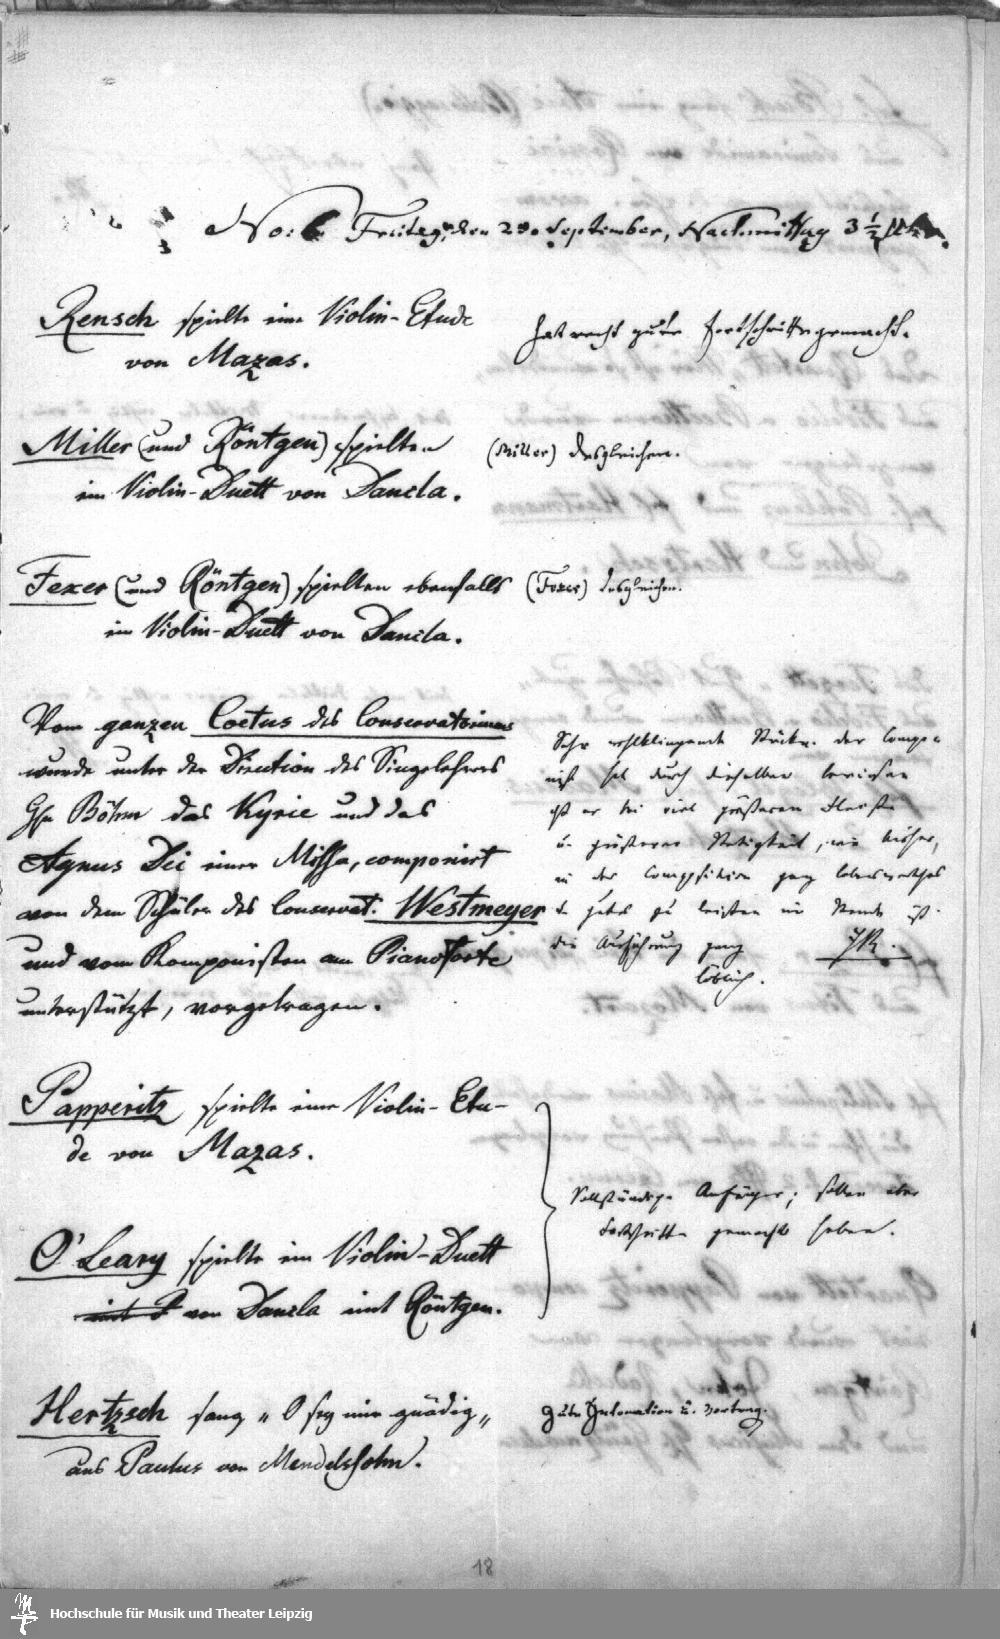 No: 6 Freitag, den 29. September, Nachmittag 3 ½ Uhr.
Rensch spielte eine Violin-Etude
von Mazas.
hat recht gute Fortschritte gemacht.
Miller (und Röntgen) spielten
ein Violin-Duett von Dancla.
(Miller) desgleichen.
Fexer (und Röntgen) spielten ebenfalls
ein Violin-Duett von Dancla.
(Fexer) desgleichen.
Vom ganzen Coetus des Conservatoriums
wurde unter der Direction des Singelehrers
Hn Böhm das Kyrie und das
Agnus Dei einer Missa, componirt
von dem Schüler des Conservat. Westmeyer
und vom Komponisten am Pianoforte
unterstützt, vorgetragen.
Sehr wohlklingende Stücke. der Compo-
nist hat durch dieselben bewiesen
daß er bei viel größerem Fleiße
u. größerer Stetigkeit, wie bisher,
in der Composition ganz lobenswerthes
u. gutes zu leisten im Stande ist.
die Ausführung ganz
löblich.
Papperitz spielte eine Violin-Etu-
de von Mazas.
O'Leary spielte ein Violin-Duett
mit R von Dancla mit Röntgen.
Vollständige Anfänger; sollen aber
Fortschritte gemacht haben.
Hertzsch sang „O sey mir gnädig„
aus Paulus von Mendelssohn.
gute Intonation u. Vortrag.
18
Hochschule für Musik und Theater Leipzig